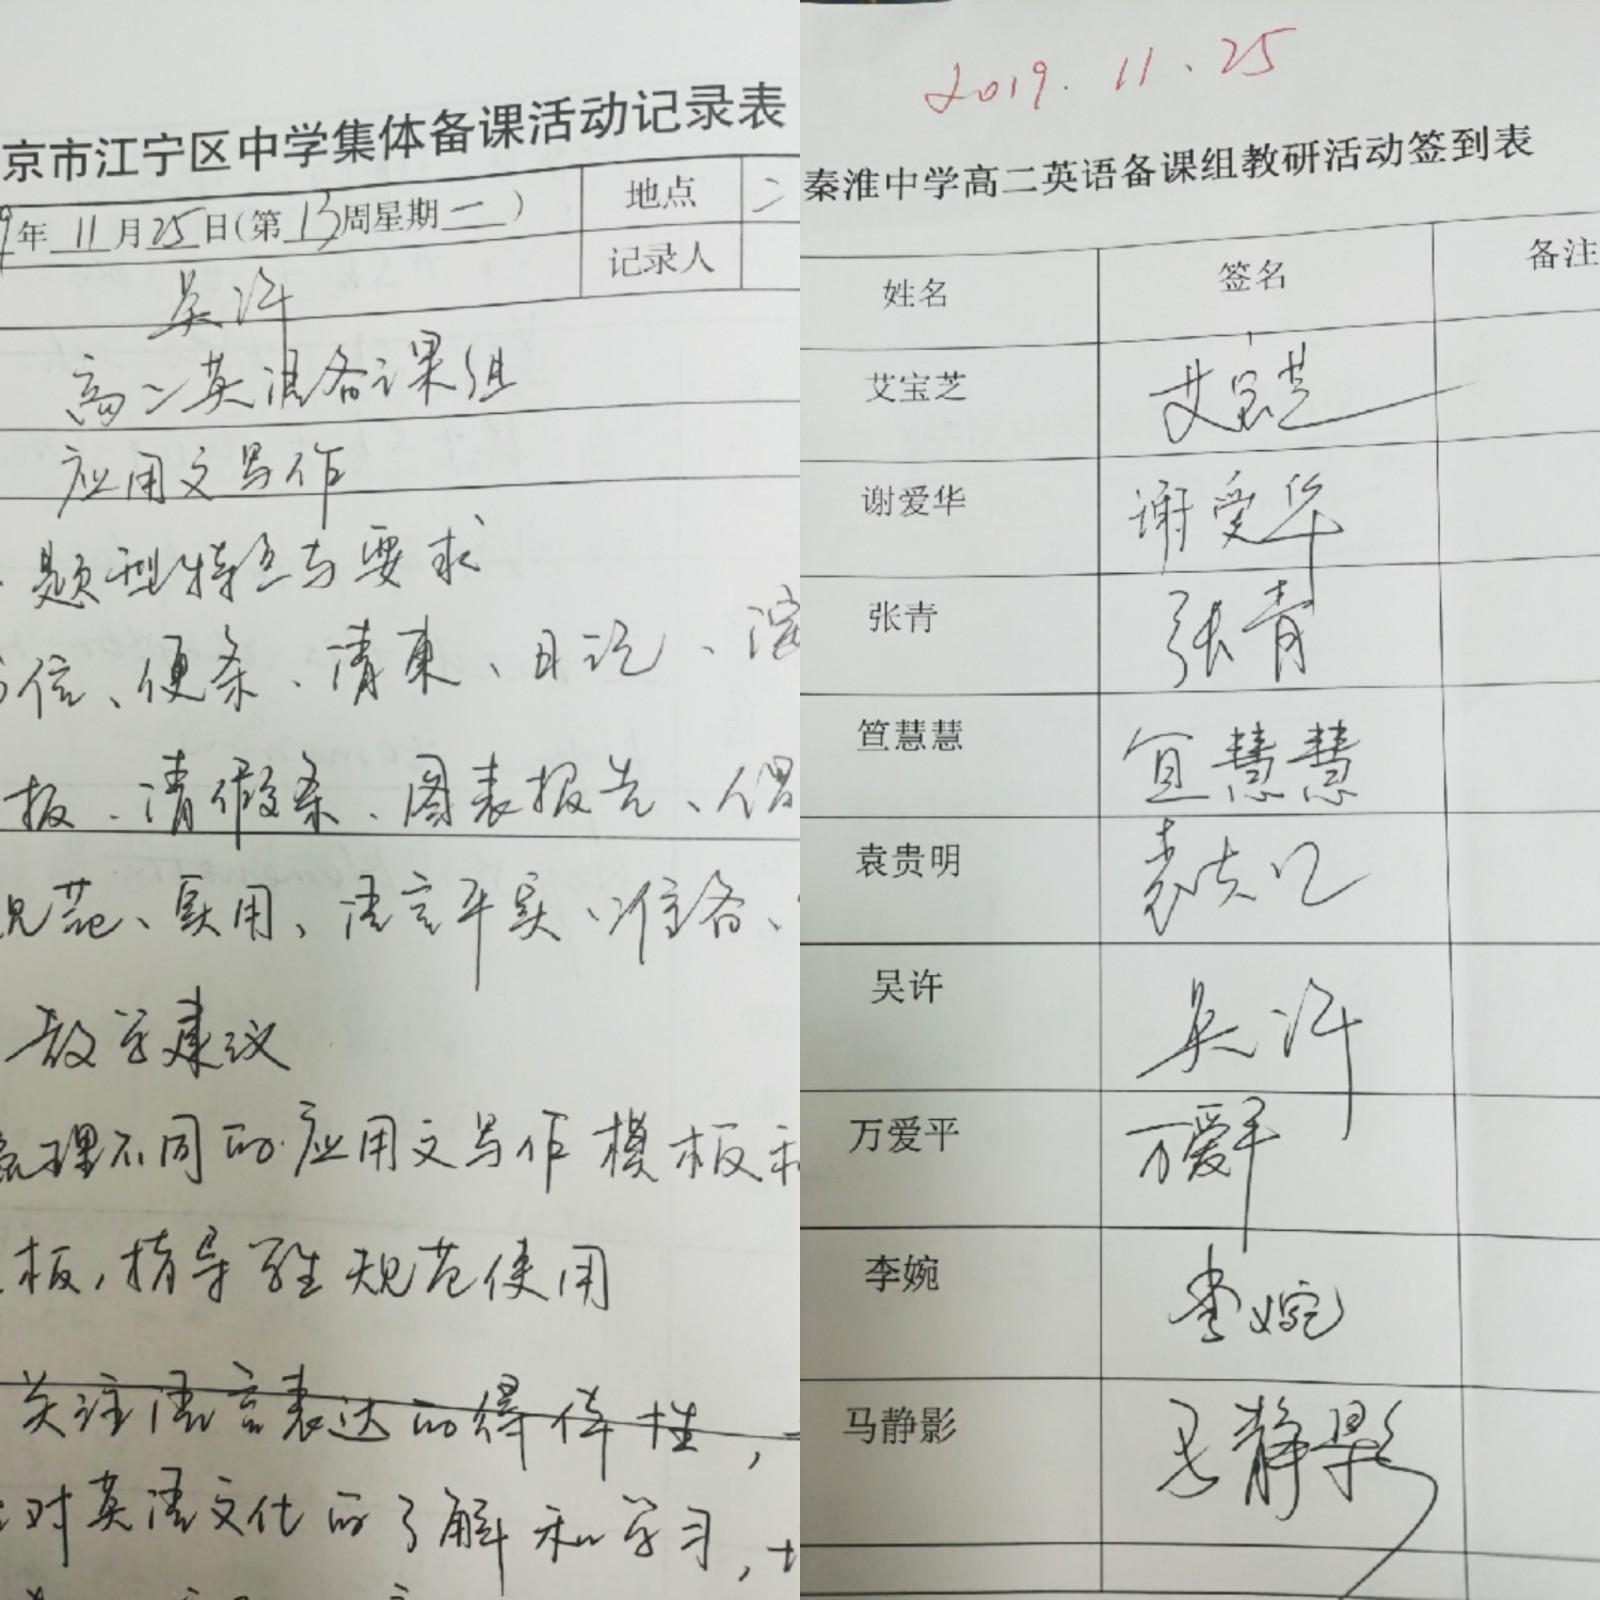 京市江宁区中学集体备课活动记录表
9年 11月25日(第13周星期一) 地点 二
记录人
吴许
高二英语备课组
应用文写作
题型特点与要求
信、便条、请柬、日记、演
报、请假条、图表报告、倡
规范、实用、语言平实、准备、
教学建议
梳理不同的应用文写作模板和
板,指导学生规范使用
关注语言表达的得体性,
对英语文化的了解和学习,
2019.11.25
秦淮中学高二英语备课组教研活动签到表
姓名 签名 备注
艾宝芝 艾宝芝
谢爱华 谢爱华
张青 张青
笪慧慧 笪慧慧
袁贵明 袁贵明
吴许 吴许
万爱平 万爱平
李婉 李婉
马静影 马静影